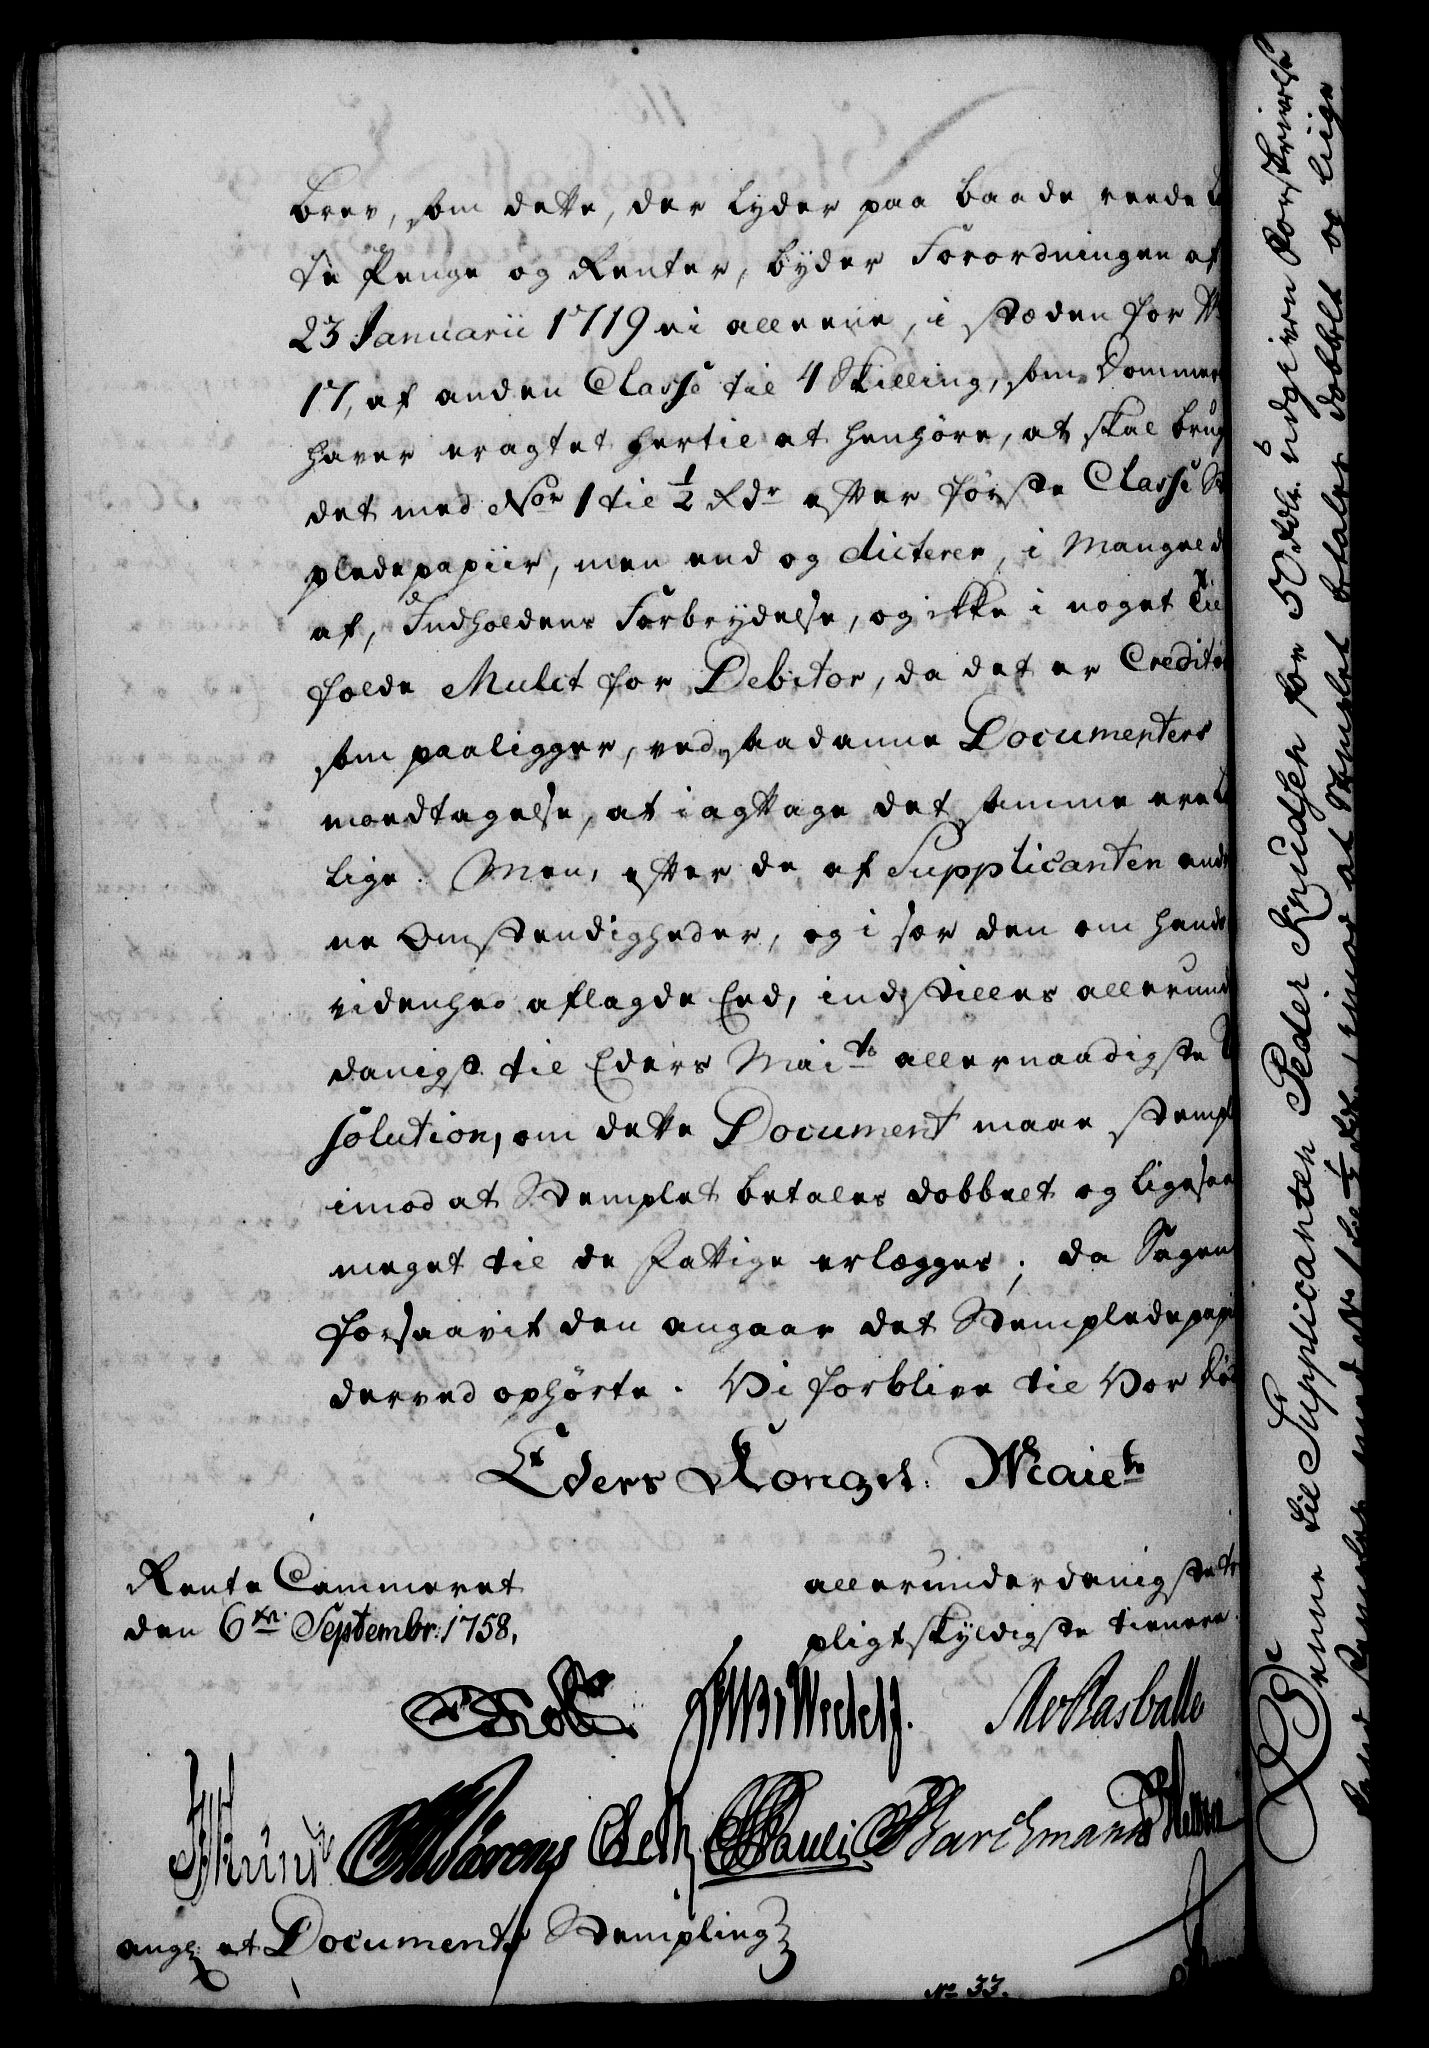 brev, som dette, der lyder paa baade reede
de Penge og Renter, byder Forordningen af
23 Januarii 1719 ei alleene, i stæden for
17, af anden Classe til 4 Skilling, som Dommer
haver eragtet hertil at henhøre, at skal brug
det med No 1 til 1/2 Rdr efter første Classe St
pledepapiir, men end og dicterer, i Mangel d
af, Indholdens Forbrydelse, og ikke i noget Til
folde Mulct for Debitor, da det er Creditor
som paaligger, ved saadanne Documenters
modtagelse, at iagttage det samme
lige. Men, efter de af Supplicanten anda
ne Omstendigheder, og i sær den om hands
videnhed aflagde Eed, indstilles allerund
danigst til Eders Maits allernaadigste
solution, om dette Document maae stempl
imod at Stemplet betales dobbelt og ligesaa
meget til de Fattige erlægges; da Sagen
forsaavit den angaar det Stempledepapi
derved ophørte. Vi forblive til Vor Død
Eders Kongel. Maiets
Rente Cammeret
den 6te Septembr: 1758.
allerunderdanigste
pligtskyldigste tienere.
angl: et Documents Stempling
No 33.
Denne til Supplicanten Peder Knudsen for 50 Rdlr. udgiven Forskrivelse
maae stemples med No 1 til 1/2 Rdr, imod at Stemplet betales dobbelt og liige